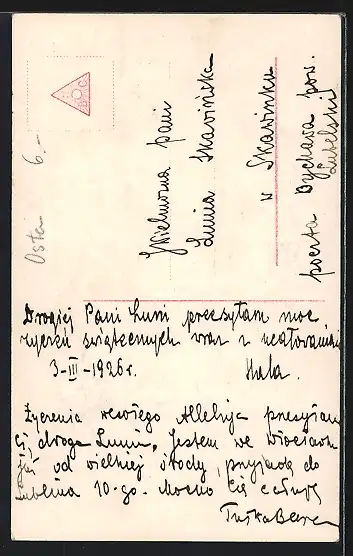 Wielmożna Pani
Lunia Skawińska
w Skawinku
poczta Bychawa pow.
Lubelski
Osta 6.-
Drogiej Pani Luni przesyłam moc
życzeń świątecznych wraz z ucałowaniami
3-III-1926r. Hala.
Życzenia wesołego Alleluja przesyłam
Ci droga Luniu, jestem we Włocławku
już od wielkiej środy, przyjadę do
Lublina 10-go. Mocno Cię całuję